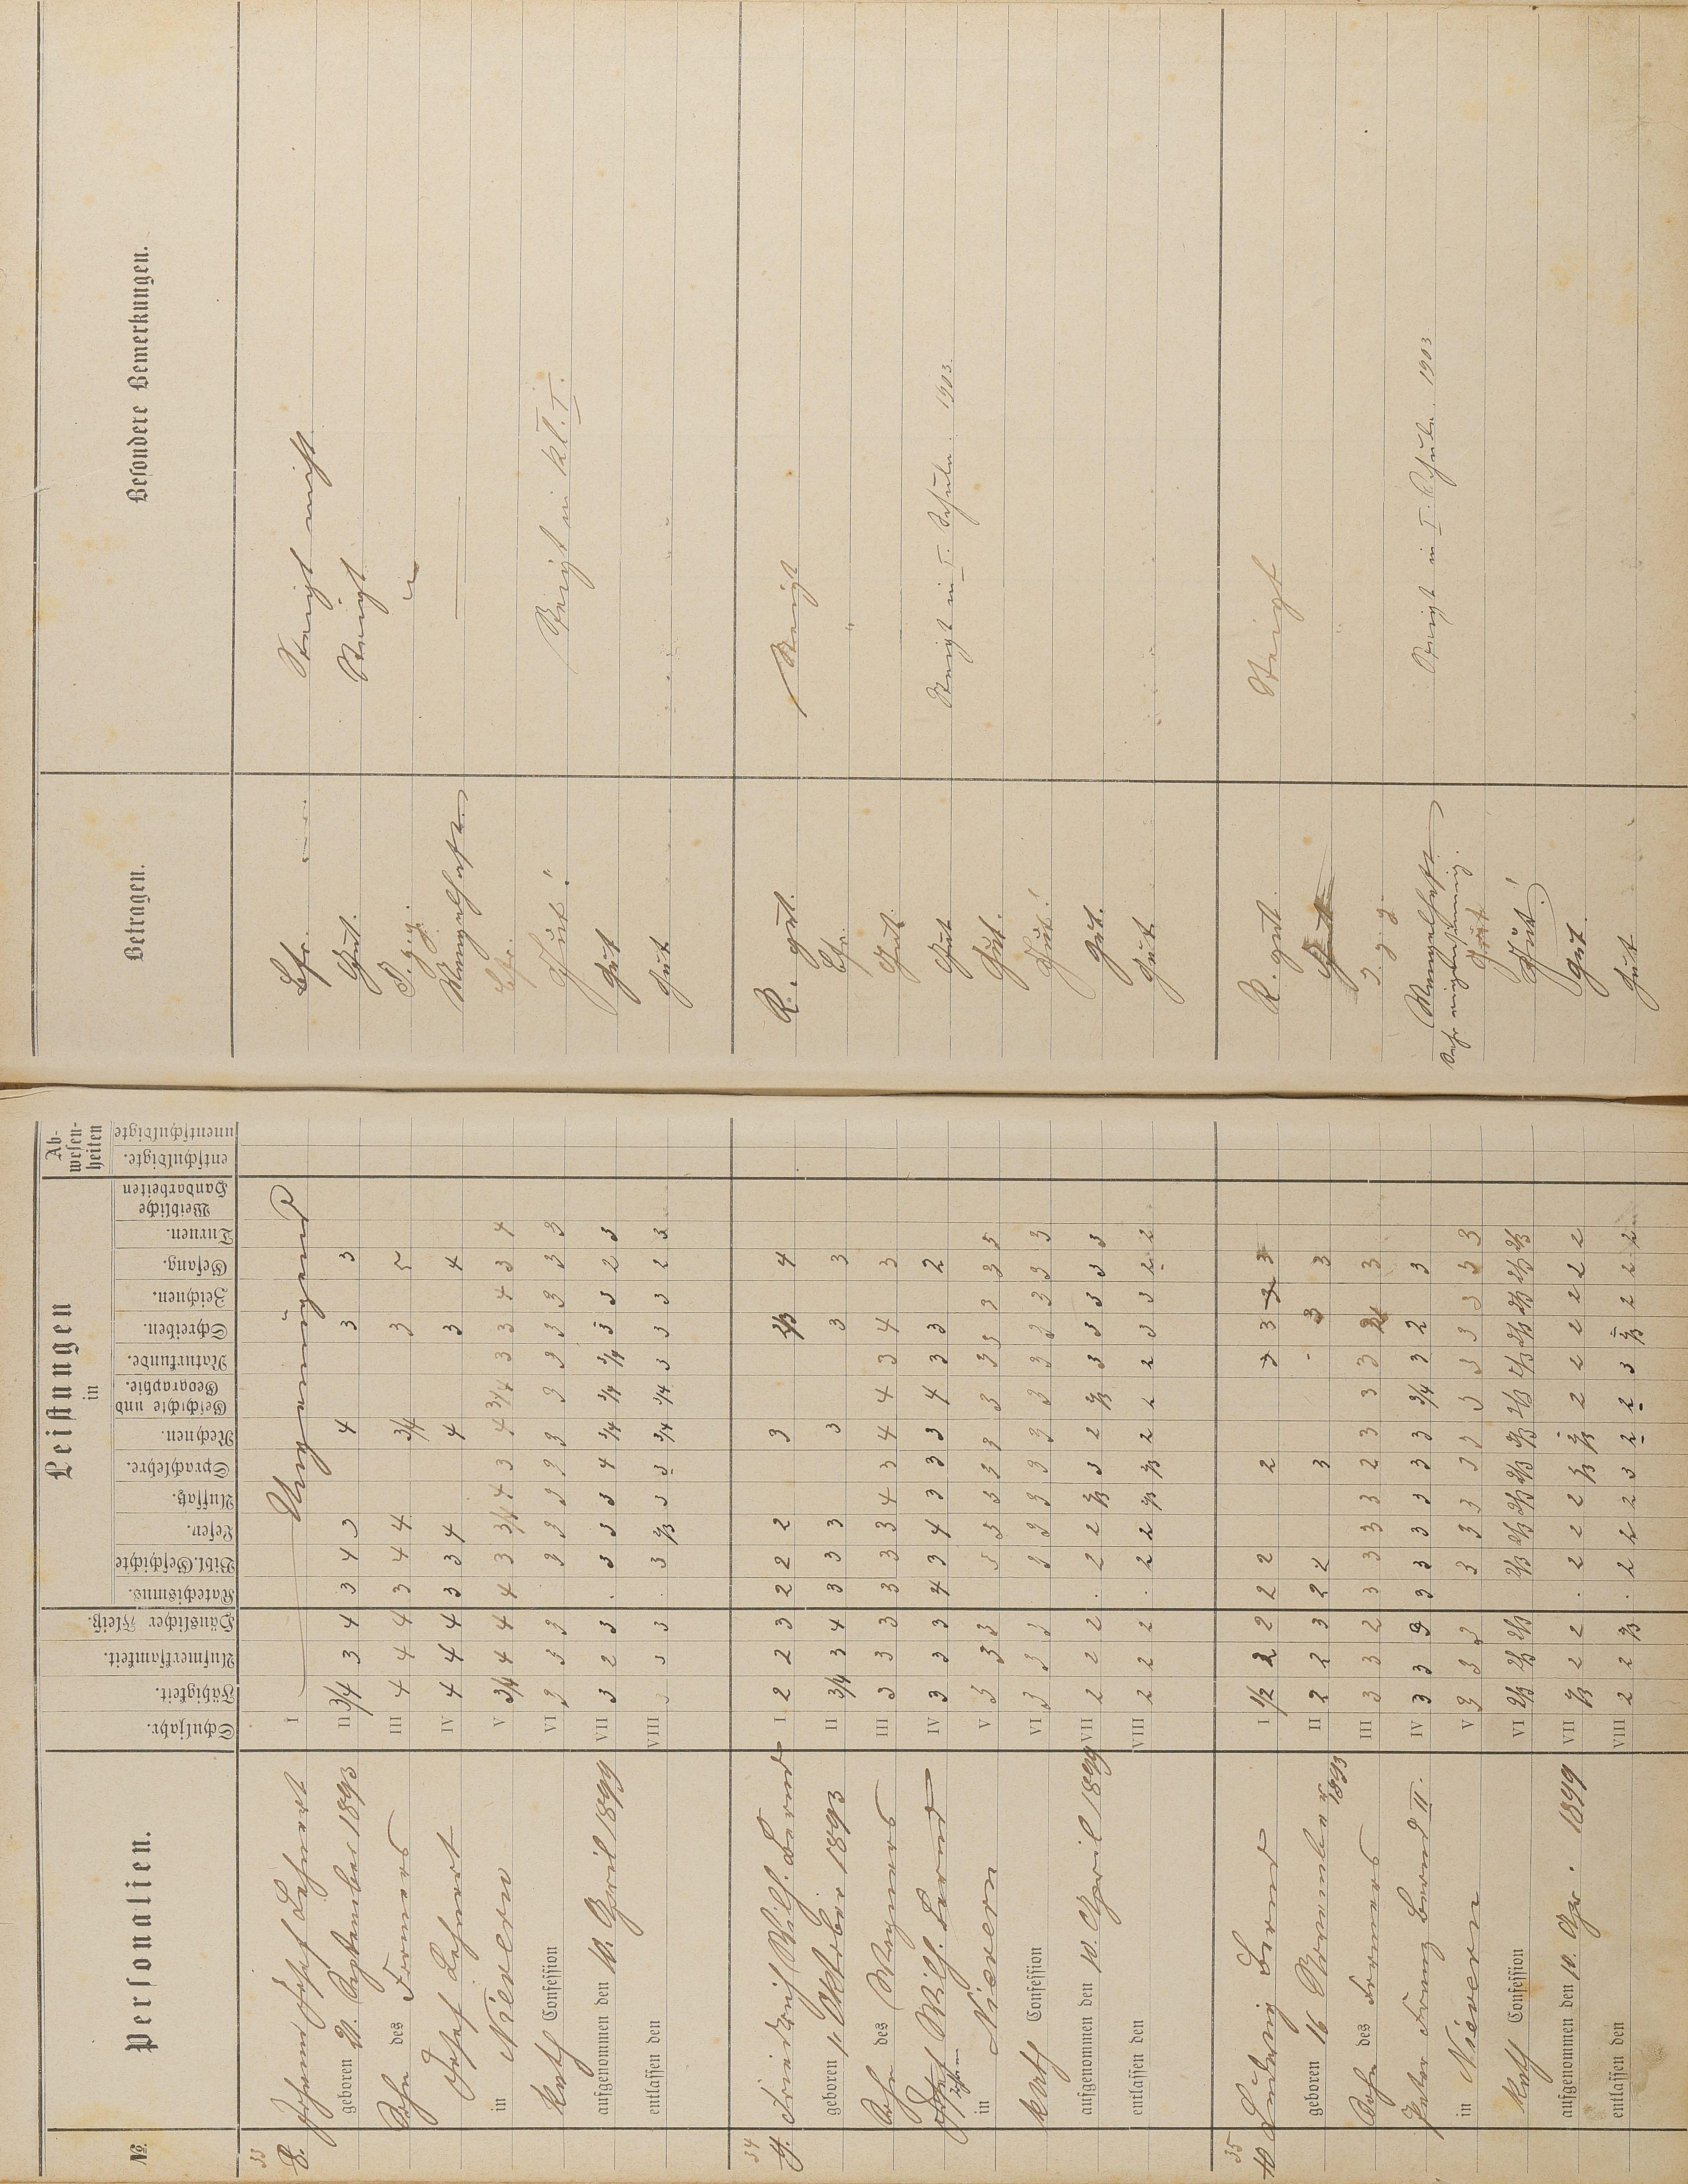 №.
Personalien.
Schuljahr.
Fähigkeit.
Aufmerksamkeit.
Häuslicher Fleiß.
Leistungen
in
Katechismus.
Bibl. Geschichte
Lesen.
Aufsatz.
Sprachlehre.
Rechnen.
Geschichte und Geographie.
Naturkunde.
Schreiben.
Zeichnen.
Gesang.
Turnen.
Weibliche Handarbeiten
Ab-
wesen-
heiten
entschuldigte.
unentschuldigte
Betragen.
Besondere Bemerkungen.
33
8. Johann Josef Lehnert I
geboren 21. September 1893 II 3/4 3 4 3 4 3 4 3 3 Gut. Steigt
Sohn des Formers III 4 4 4 3 4 4 3/4 3 5
Josef Lehnert IV 4 4 4 3 3 4 4 3 4 Mangelhaft
in Nievern V 3/4 4 4 4 3 3/4 4 3 4 3/4 3 3 4 3 4
kath Confession VI 3 3 3 3 3 3 3 3 3 3 3 3 3 3 Gut! Steigt in Kl. I.
aufgenommen den 10. April 1899 VII 3 2 3 . 3 3 3 4 3/4 3/4 3/4 3 3 2 3 Gut
entlassen den VIII 3 3 3 . 3 2/3 3 3 3/4 3/4 3 3 3 2 3 Gut
34
9. Friedrich Wilh. Bernd I 2 2 3 2 2 2 3 2/3 4 R. gut. Steigt
geboren 11 Oktober 1893 II 3/4 3 4 3 3 3 3 3 3 "
Sohn des Wagners III 3 3 3 3 3 3 4 3 4 4 3 4 3 Gut
Wilh. Bernd IV 3 3 3 4 3 4 3 3 3 4 3 3 2 Gut Steigt in I. Schule. 1903.
in Nievern V 3 3 3 3 3 3 3 3 3 3 3 3 3 3 Gut.
kath Confession VI 3 3 3 3 3 3 3 3 3 3 3 3 3 3 Gut!
aufgenommen den 10. April 1899 VII 2 2 2 . 2 2 2/3 3 2 2/3 3 3 3 3 3 Gut.
entlassen den VIII 2 2 2 . 2 2 2/3 2/3 2 2 2 3 3 2 2 Gut
35
10 Ludwig Bernd I 1/2 2 2 2 2 2 3 3 R. gut Steigt
geboren 16 November 1893 II 2 2 3 2 2 3 - 3 3 Gut
Sohn des Formers III 3 3 2 3 3 3 3 2 3 3 3 3
Peter Franz Bernd II. IV 3 3 3 3 3 3 3 3 3 3/4 3 2 3 Mangelhaft Steigt in I. Schule. 1903
in Nievern V 3 3 3 3 3 3 3 3 3 3 3 3 3 3 Gut
kath Confession VI 2/3 2/3 2/3 2/3 2/3 2/3 2/3 2/3 2/3 2/3 2/3 2/3 2/3 2/3 Gut!
aufgenommen den 10. Apr. 1899 VII 2/3 2 2 . 2 2 2 2/3 2/3 2 2 2 2 2 2 Gut.
entlassen den VIII 2 2 2/3 . 2 2 2 3 2 2 3 2/3 2 2 2 Gut